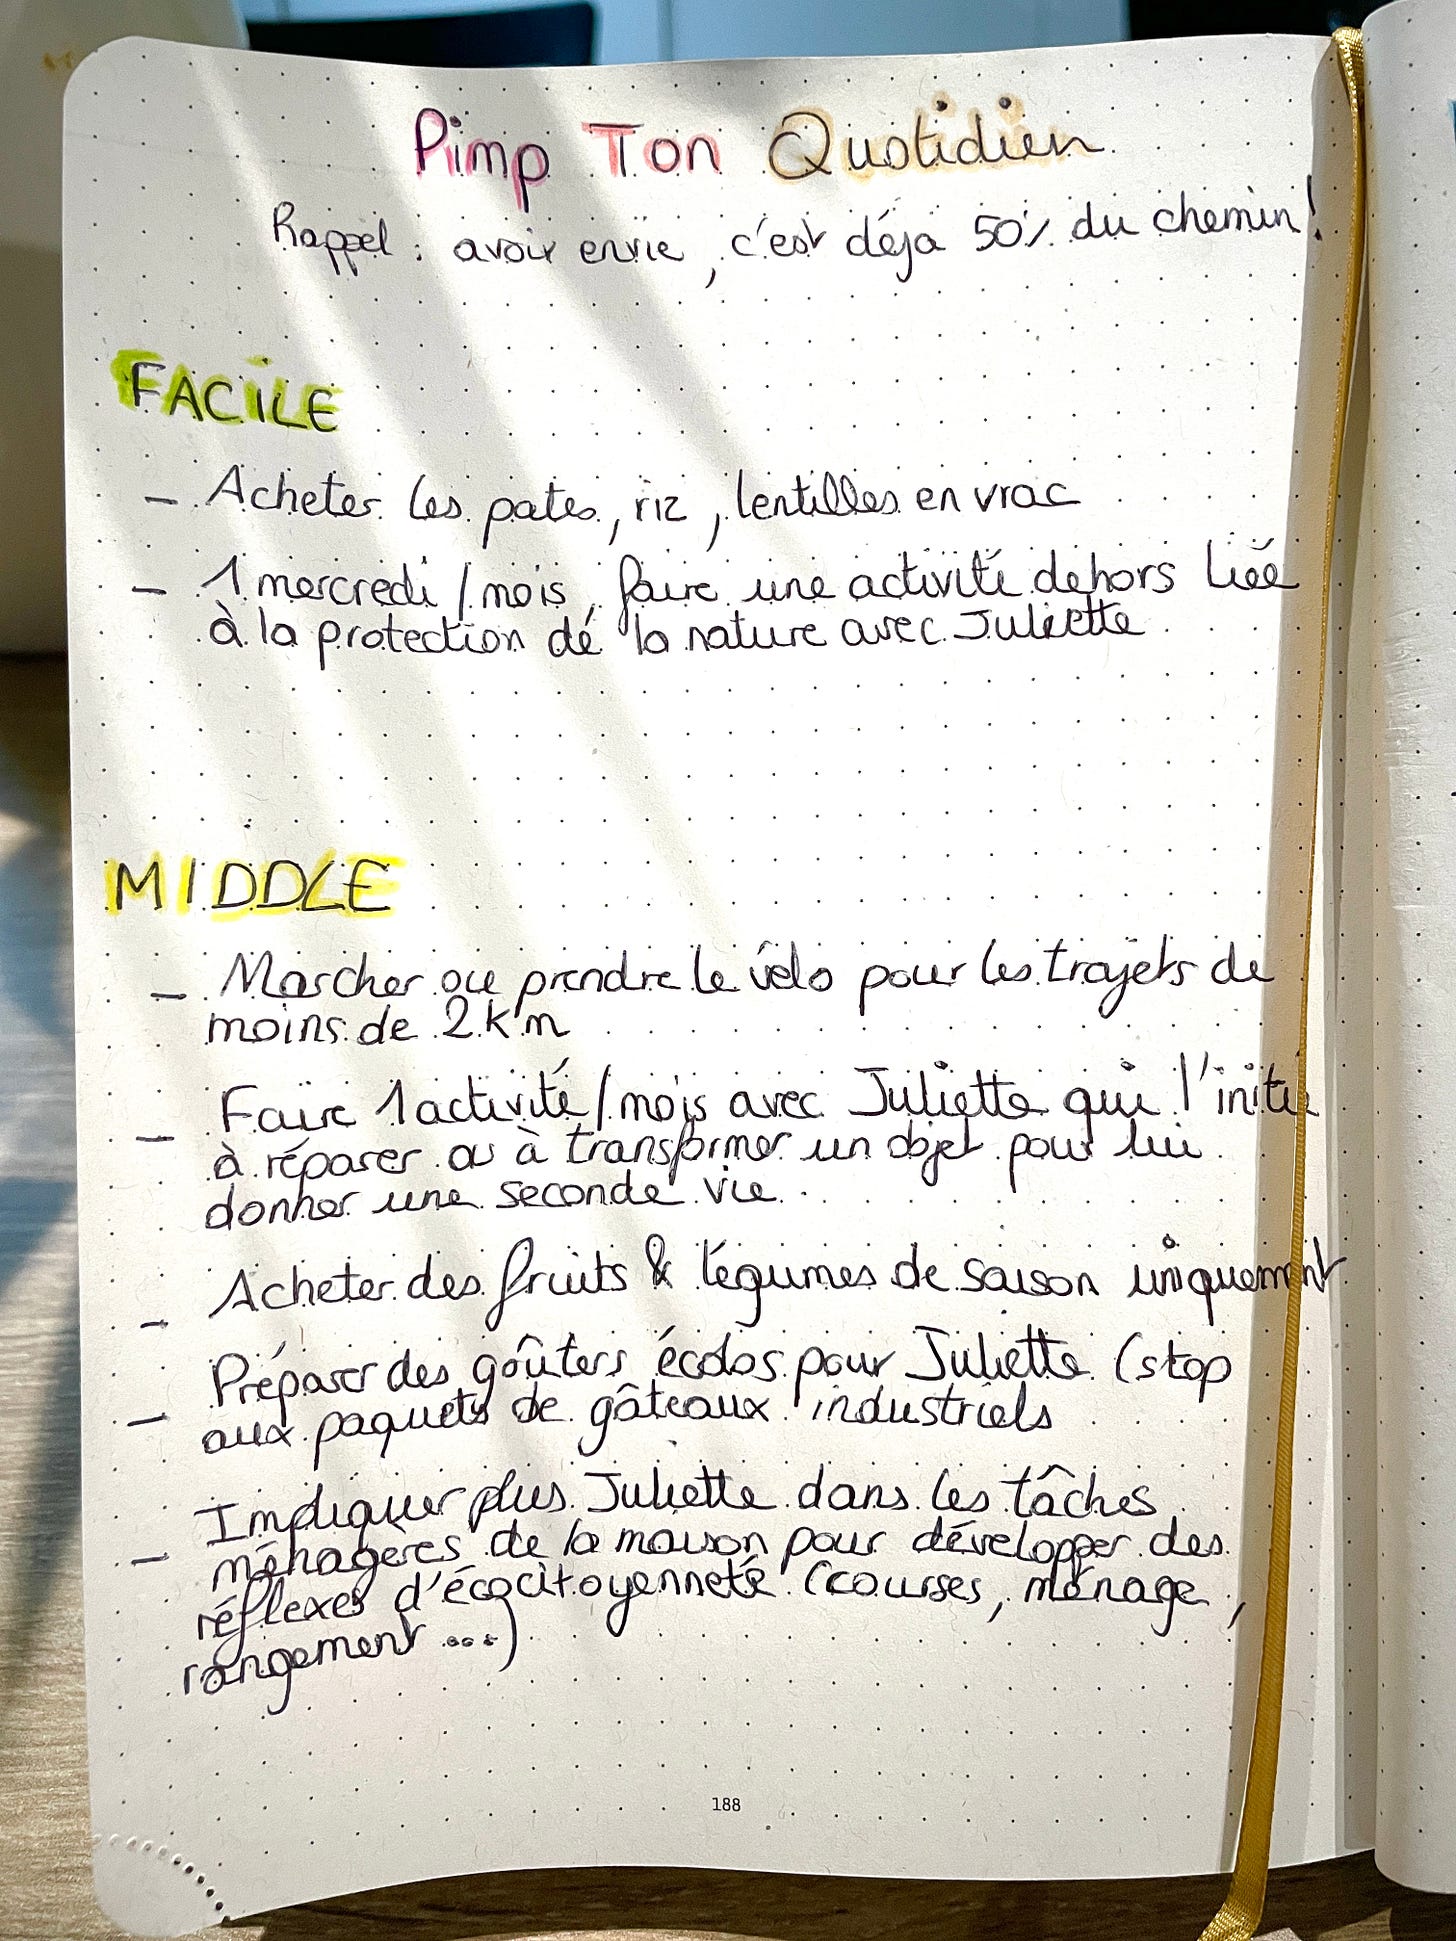 Pimp Ton Quotidien
Rappel : avoir envie, c'est déja 50% du chemin!
FACILE
- Acheter les pates, riz, lentilles en vrac
- 1 mercredi / mois, faire une activité dehors liée
à la protection de la nature avec Juliette
MIDDLE
- Marcher ou prendre le vélo pour les trajets de
moins de 2 km
- Faire 1 activité / mois avec Juliette qui l'initie
à réparer ou à transformer un objet pour lui
donner une seconde vie
- Acheter des fruits & légumes de saison uniquement
- Préparer des goûters écolos pour Juliette (stop
aux paquets de gâteaux industriels
- Impliquer plus Juliette dans les tâches
ménagères de la maison pour développer des
réflexes d'écocitoyenneté (courses, ménage,
rangement ...)
188